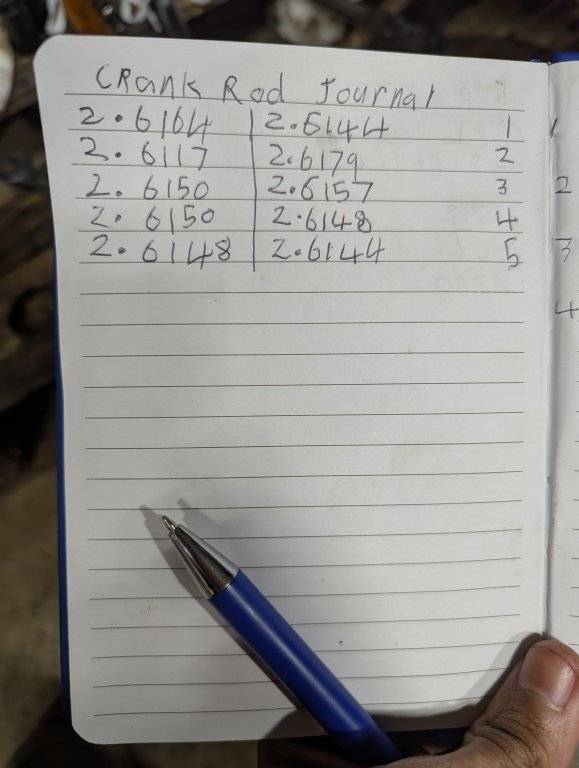 CRank Rod Journal
2.6164 | 2.6144 1
2.6117 | 2.6179 2
2.6150 | 2.6157 3
2.6150 | 2.6148 4
2.6148 | 2.6144 5
2
3
4